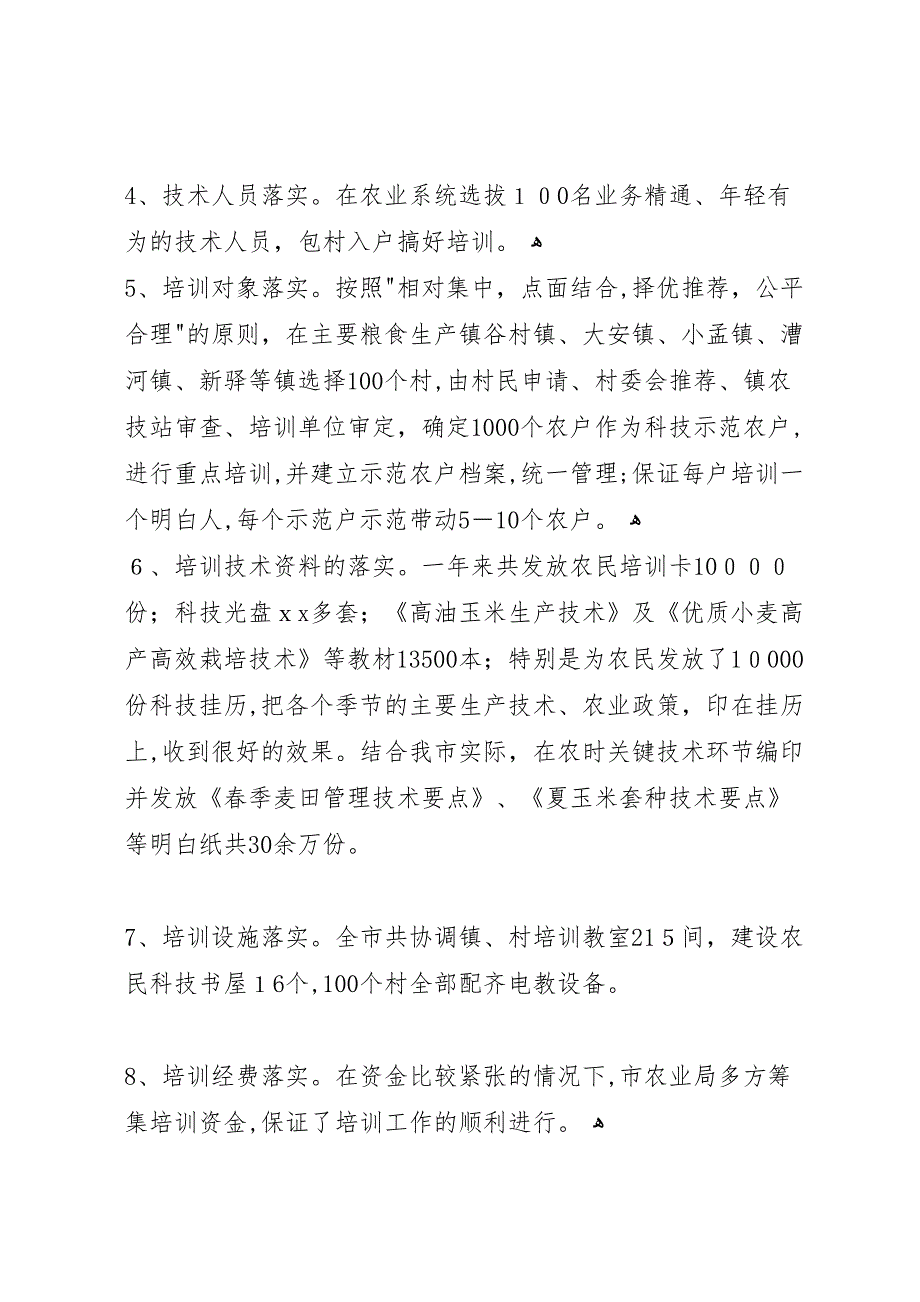 4、技术人员落实。在农业系统选拔１00名业务精通、年轻有
为的技术人员，包村入户搞好培训。 ﻫ
5、培训对象落实。按照"相对集中，点面结合,择优推荐，公平
合理"的原则，在主要粮食生产镇谷村镇、大安镇、小孟镇、漕
河镇、新驿等镇选择100个村,由村民申请、村委会推荐、镇农
技站审查、培训单位审定，确定1000个农户作为科技示范农户,
进行重点培训,并建立示范农户档案,统一管理;保证每户培训一
个明白人,每个示范户示范带动5—10个农户。 ﻫ
６、培训技术资料的落实。一年来共发放农民培训卡10０００
份；科技光盘ｘx多套；《高油玉米生产技术》及《优质小麦高
产高效栽培技术》等教材13500本；特别是为农民发放了１0000
份科技挂历,把各个季节的主要生产技术、农业政策，印在挂历
上,收到很好的效果。结合我市实际，在农时关键技术环节编印
并发放《春季麦田管理技术要点》、《夏玉米套种技术要点》
等明白纸共30余万份。
7、培训设施落实。全市共协调镇、村培训教室21５间，建设农
民科技书屋１6个,100个村全部配齐电教设备。
8、培训经费落实。在资金比较紧张的情况下,市农业局多方筹
集培训资金,保证了培训工作的顺利进行。 ﻫ